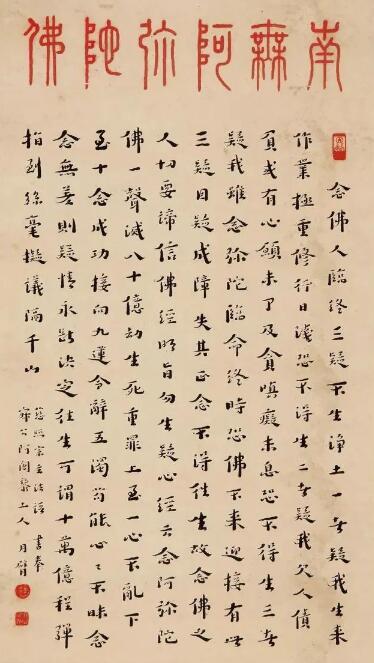 南無阿弥陀佛
念佛人臨終三疑不生淨土一者疑我生來
作業極重修行日淺恐不得生二者疑我欠人債
負或有心願未了及貪嗔癡未息恐不得生三者
疑我雖念弥陀臨命終時恐佛不來迎接有此
三疑因疑成障失其正念不得往生故念佛之
人切要諦信佛經明旨勿生疑心經云念阿弥陀
佛一聲滅八十億劫生死重罪上至一心不亂下
至十念成功接向九蓮令辭五濁苟能心〻不昧念
念無差則疑情永斷決定往生可謂十萬億程彈
指到絲毫擬議隔千山
慈照宗主法語 書奉
公阿闍黎上人 月臂